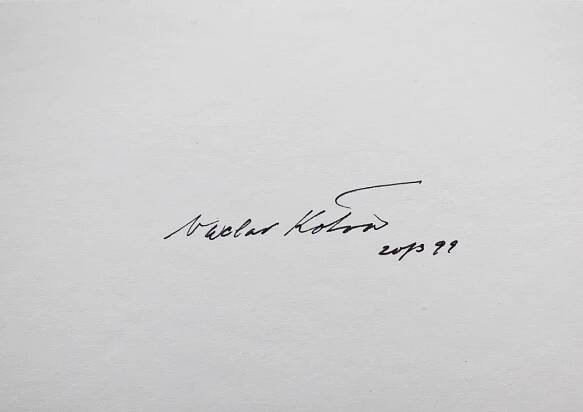 Václav Kotva
20/3 99